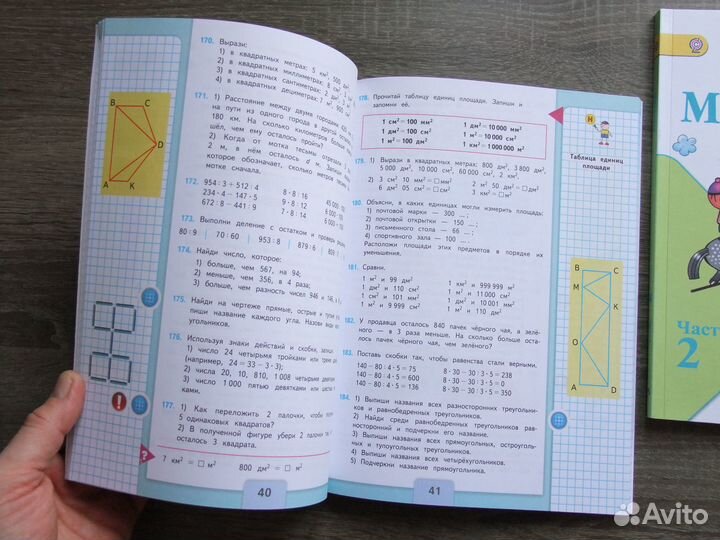 170. Вырази:
1) в квадратных метрах: 5 км², 500
2) в квадратных миллиметрах: 8 см²
3) в квадратных сантиметрах: 2 дм²
4) в квадратных дециметрах: 7 м², 90
171. 1) Расстояние между двумя городами 420
на пути из одного города в другой
180 км. На сколько километров больше
шёл, чем ему осталось пройти?
2) Когда от мотка тесьмы отрезали
2 м, в нём осталось d м. Запиши
которое обозначает, сколько метров
мотке сначала.
172. 954 : 3 + 512 : 4
234 · 4 − 147 · 5
672 : 8 − 441 : 9
8 · 8 · 16
9 · 8 : 12
7 · 8 : 14
45 000 : 
6 000 · 100
6 000 : 100
173. Выполни деление с остатком и проверь
80 : 9 70 : 60 953 : 8 879 : 6 409 :
174. Найди число, которое:
1) больше, чем 567, на 94;
2) меньше, чем 356, в 4 раза;
3) больше, чем разность чисел 946 и
175. Найди на чертеже прямые, острые и
пиши название каждого угла. Назови
угольников.
176. Используя знаки действий и скобки,
1) число 24 четырьмя тройками или тремя
(например, 24 = 33 − 3 · 3);
2) числа 20, 10, 810, 1 008 четырьмя
3) число 1 000 пятью девятками или шестью
ками.
177. 1) Как переложить 2 палочки, чтобы
5 одинаковых квадратов?
2) В полученной фигуре убери 2 палочки так
осталось 3 квадрата.
? 7 км² = □ м² 800 дм² = □ м²
40
B C
D
A K
!
178. Прочитай таблицу единиц площади. Запиши и
запомни её.
1 см² = 100 мм²
1 дм² = 100 см²
1 м² = 100 дм²
1 дм² = 10 000 мм²
1 м² = 10 000 см²
1 км² = 1 000 000 м²
Н
Таблица единиц
площади
179. 1) Вырази в квадратных метрах: 800 дм², 3 800 дм²,
5 000 дм², 10 000 см², 60 000 см², 2 км².
2) 3 см² 10 мм² = □ мм² 2 м² 50 дм² = □ дм²
6 дм² 05 см² = □ см² 1 м² = □ см²
180. Объясни, в каких единицах могли измерить площадь:
1) почтовой марки — 300 ...;
2) почтовой открытки — 150 ...;
3) письменного стола — 66 ...;
4) спортивного зала — 100 ... .
Расположи площади этих предметов в порядке их
уменьшения.
181. Сравни.
1 м² и 99 дм²
1 дм² и 110 см²
1 см² и 101 мм²
1 м² и 9 999 см²
1 км² и 999 999 м²
1 м² и 11 000 см²
1 дм² и 10 001 мм²
1 м² и 110 дм²
182. У продавца осталось 840 пачек чёрного чая, а зелё-
ного — в 3 раза меньше. На сколько больше оста-
лось пачек чёрного чая, чем зелёного?
183. Поставь скобки так, чтобы равенства стали верными.
140 − 80 : 4 · 5 = 75
140 − 80 : 4 · 5 = 600
140 − 80 : 4 · 5 = 136
8 · 30 − 30 : 3 + 5 = 238
8 · 30 − 30 : 3 + 5 = 0
8 · 30 − 30 : 3 + 5 = 350
184. 1) Выпиши названия всех разносторонних треугольни-
ков и равнобедренных треугольников.
2) Найди среди равнобедренных треугольников рав-
носторонний и подчеркни его название.
3) Выпиши названия всех прямоугольных, остроуголь-
ных и тупоугольных треугольников.
4) Выпиши названия всех четырёхугольников.
5) Подчеркни название прямоугольника.
41
B C
M
K
O
A D
М
Част
2
Avito